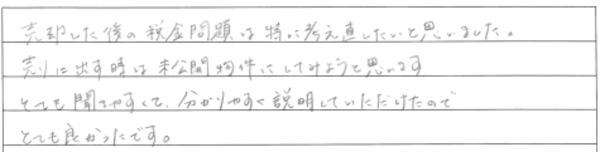 売却した後の税金問題は特に考え直したいと思いました。
売りに出す時は未公開物件にしてみようと思います
とても聞きやすくて、分かりやすく説明していただけたので
とても良かったです。